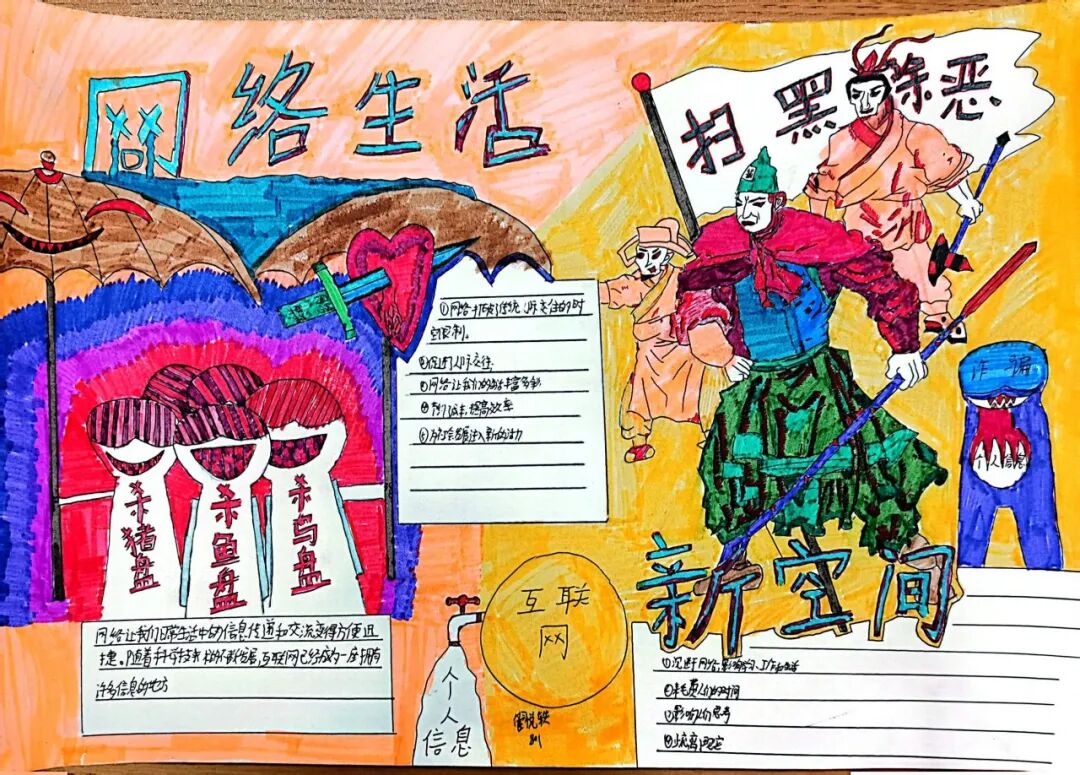 网络生活
扫黑除恶
①网络打破了传统人际交往的时
空限制。
②促进人际交往.
③网络让我们的生活丰富多彩
提高效率
注入新的活力
诈骗
个人信息
杀猪盘
杀鱼盘
杀鸟盘
新空间
互联
网
网络让我们日常生活中的信息传递和交流变得方便迅
捷。随着科学技术的不断发展,互联网已经成为一座拥有
许多信息的地方
个人
信息
①沉迷于网络,影响学习、工作和生活
人们的时间
③影响人们思考